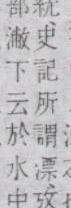 統史記所謂漂攷
部澉下云於水中